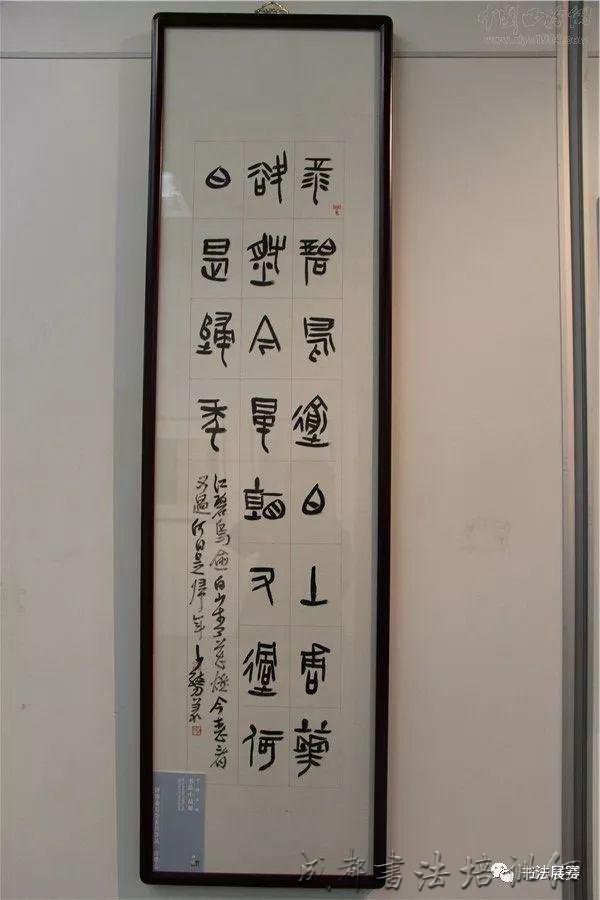 江碧鳥逾白山青花
欲然今春看又過何
日是歸年
江碧鳥逾白山青花欲燃今春看
又過何日是歸年
中国西泠网
成都書法培训网
书法展赛